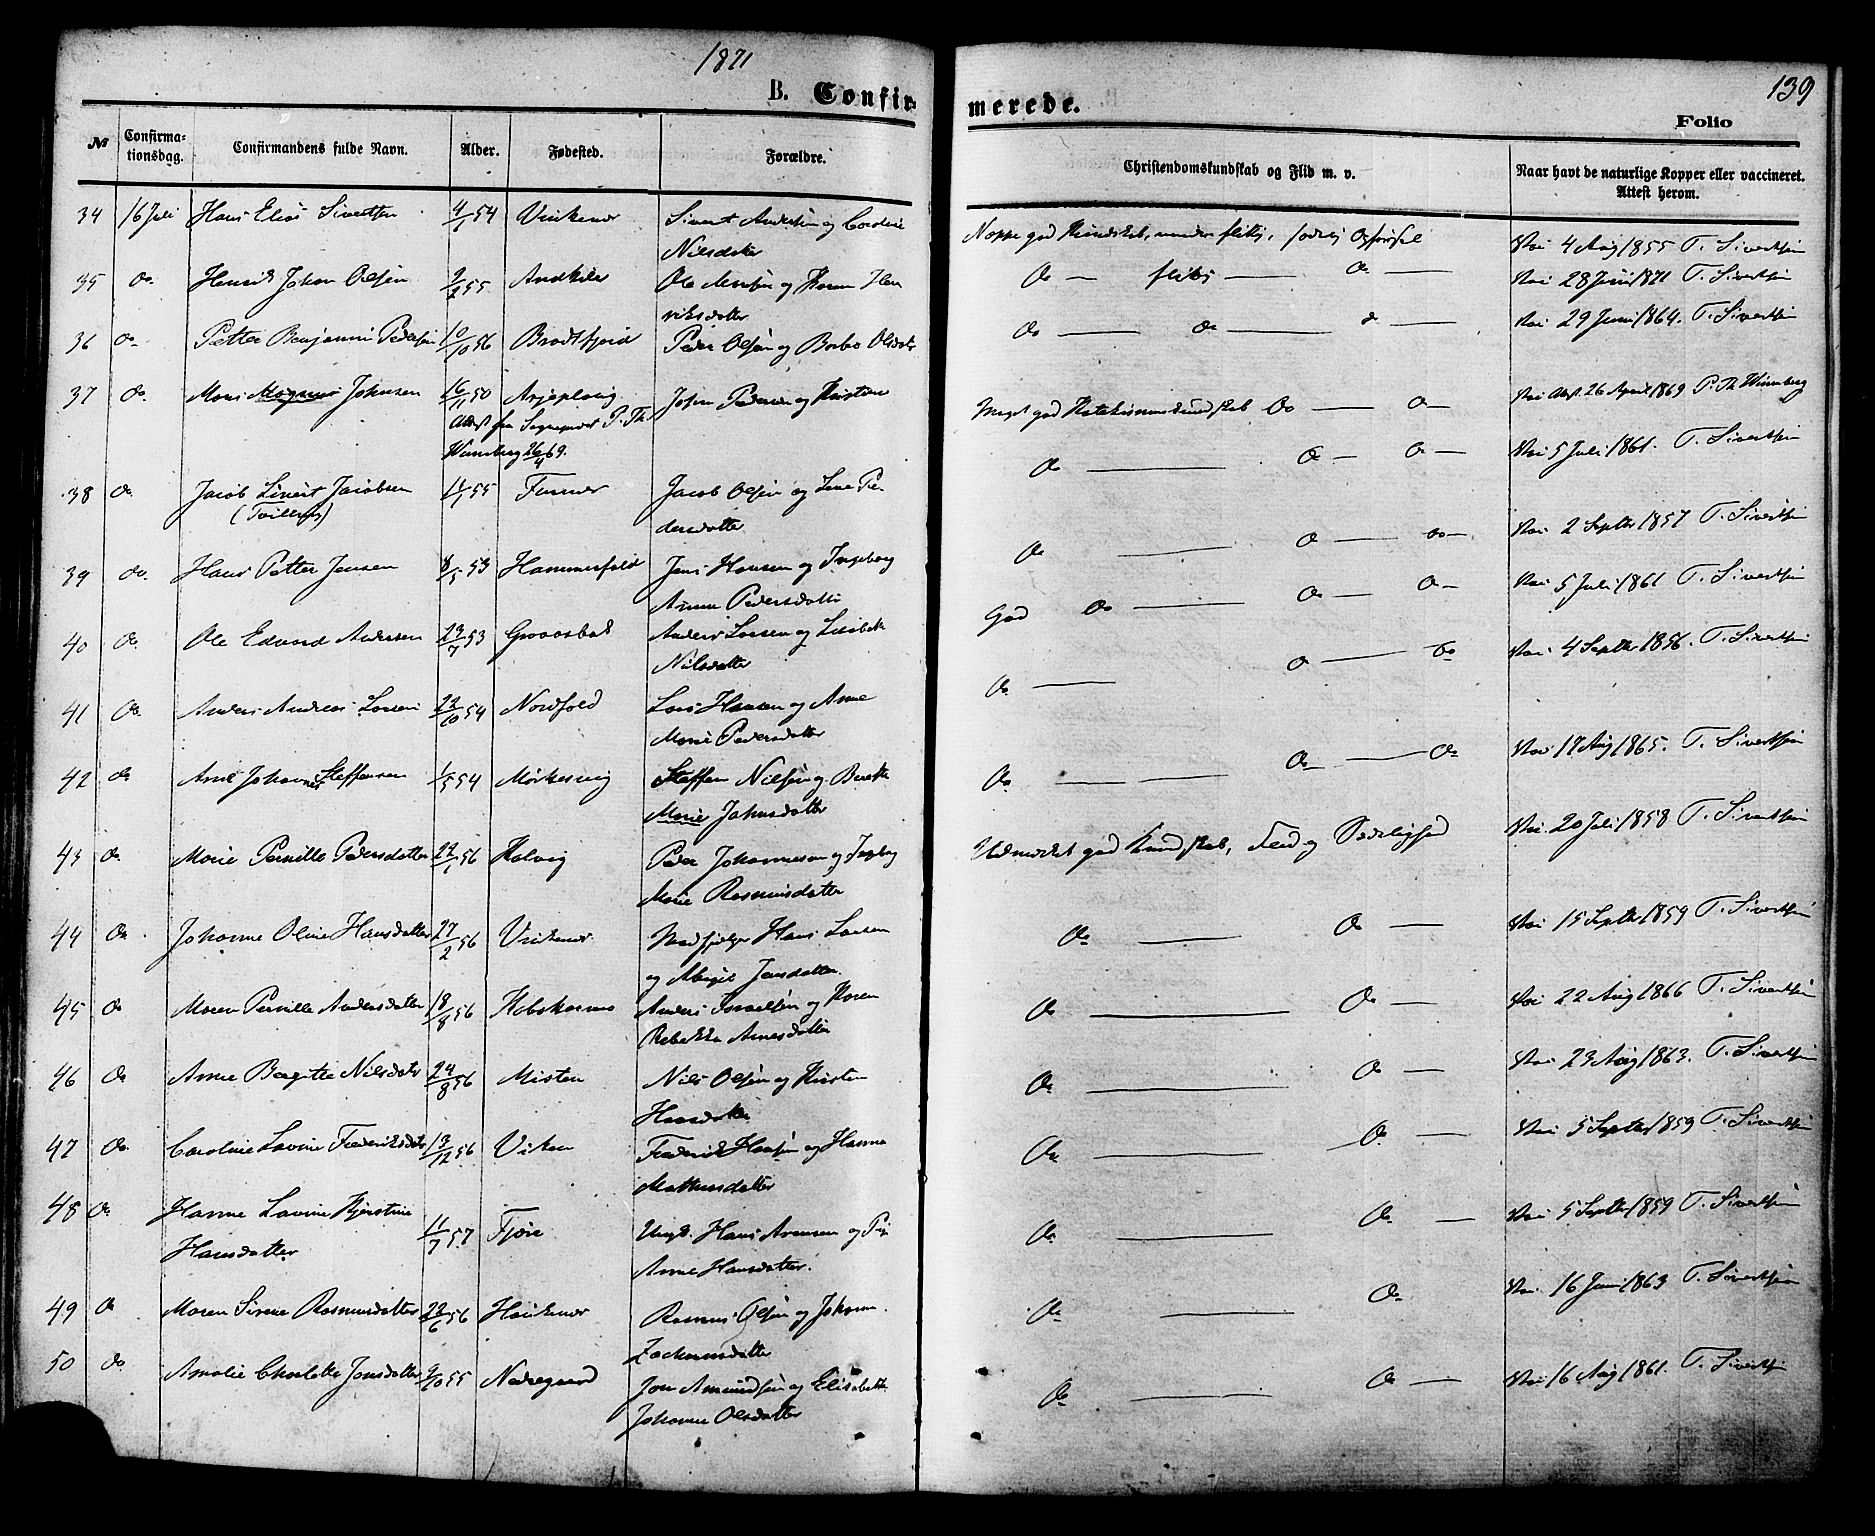 1871
139
B. Confirmerede.
Folio
№ Confirmationsdag. Confirmandens fulde Navn. Alder. Fødested. Forældre. Christendomskundskab og Flid m. v. Naar havt de naturlige Kopper eller vaccineret. Attest herom.
34 16 Juli Hans Elias Sivertsen 4/1 54 Vinkenes Sivert Andersen og Caroline
Nilsdatter
Noppe god Kundskab, mindre flittig, sædelig Opførsel Vac 4 Aug 1855 T. Sivertsen
35 do. Henrik Johan Olsen 9/2 55 Andkilen Ole og Karen Hen
riksdatter
Do — flittig — Do — Vac 28 Juni 1871 T. Sivertsen
36 do. Petter Benjamin Pedersen 10/10 56 Brodtfjord Peder Olsen og Olsdatr
Do — do — Vac 29 Juni 1864. T. Sivertsen
37 do. Mons Magnus Johnsen 16/11 50 Arjeplovig John Pedersen og Kirsten
Attest fra P. Th.
26/4 69.
Meget god Do — Do — Vac Att. 26 April 1869 P. Th
38 do Jacob Sivert Jacobsen 11/1 55 Jacob Olsen og Lene Pe
(Tvilling)
dersdatter
Do — Do — Do — Vac 5 Juli 1861. T. Sivertsen
39 do. Hans Petter Jensen 8/5 53 Hammerfald Jens Hansen og Ingeborg
Anna Pedersdatter
Do — Do — do — Vac 2 Septbr 1857 T. Sivertsen
40 do. Ole Edvard Andersen 23/7 53 Anders Larsen og
Nilsdatter
God Do — Do — Do — Vac 5 Juli 1861 T. Sivertsen
41 Do. Anders Andreas Larsen 22/10 54 Nordfold Lars Hansen og Anne
Marie Pedersdatter
Do — Do — Do Vac 4 Septbr 1856. T. Sivertsen
42 do Arnt Johannes Steffensen 1/5 54 Mørkesvig Steffen Nilsen og
Marie Johnsdatter
Do — Do — Do Vac 17 Aug 1865. T. Sivertsen
43 do Marie Pernille Pedersdatter 22/1 56 Kalvig Peder Johannesen og Ingebrg
Marie Rasmusdatter
Udmærket god Kundskab, Flid og Sædelighed Vac 20 Juli 1858 T. Sivertsen
44 Do. Johanne Oline Hansdatter 27/2 56 Vinkenes Hans Larsen
og Jensdatter.
Do — Do — Vac 15 Septbr 1859 T. Sivertsen
45 do Maren Pernille Andersdatter 18/8 56 Anders Israelsen og Karen
Rebekka Arnesdatter
Do — Do — Vac 22 Aug 1866 T. Sivertsen
46 Do Anne Bergitte Nilsdatr 24/8 56 Misten Nils Olsen og Kirsten
Hansdatter
Do — Do — Vac 23 Aug 1863. T. Sivertsen
47 Do. Caroline Lavine Frederiksdatr 13/12 56 Viken Frederik Hansen og Hanna
Do — Do — Vac 5 Septbr 1859 T. Sivertsen
48 Do. Hanne Lavine Kjerstine
Hansdatter
11/7 57 Fjære Ungk. Hans Arensen og Pg.
Anne Hansdatter.
Do — Do — Vac 5 Septbr 1859 T. Sivertsen
49 Do Maren Sirene Rasmusdatter 22/6 56 Rasmus Olsen og Johanne
Zachariasdatter
Do — Do Vac. 16 Juni 1863 T. Sivertsen
50 do Amalie Charlotte Jonsdatter 9/10 55 Næsgaard Jon Amundsen og Elisabeth
Johanne Olsdatter
Do — Do — Vac 16 Aug 1861. T. Sivertsen